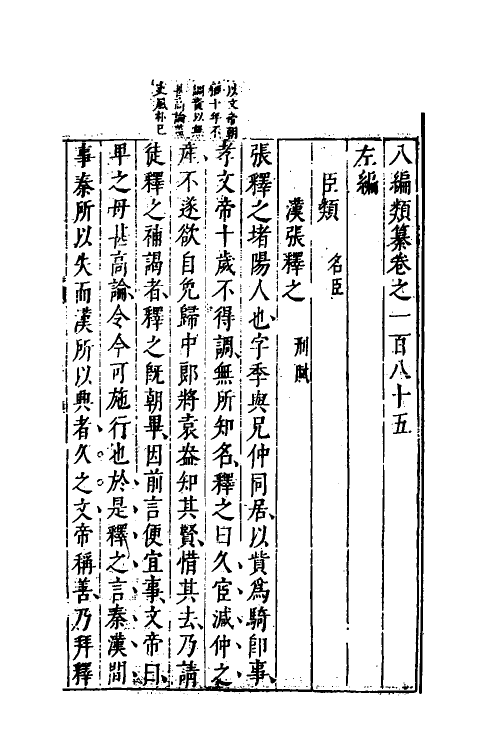 八編類纂卷之一百八十五
左編
臣類　名臣
漢張釋之　刑獄
張釋之堵陽人也字季與兄仲同居以貲爲騎郎事
孝文帝十歲不得調無所知名釋之曰久宦減仲之
產不遂欲自免歸中郎將袁盎知其賢惜其去乃請
徒釋之補謁者釋之旣朝畢因前言便宜事文帝曰
卑之毋甚高論令今可施行也於是釋之言秦漢間
事秦所以失而漢所以興者久之文帝稱善乃拜釋
以文帝朝
十年不
調貲以無
甚高論
文風朴已